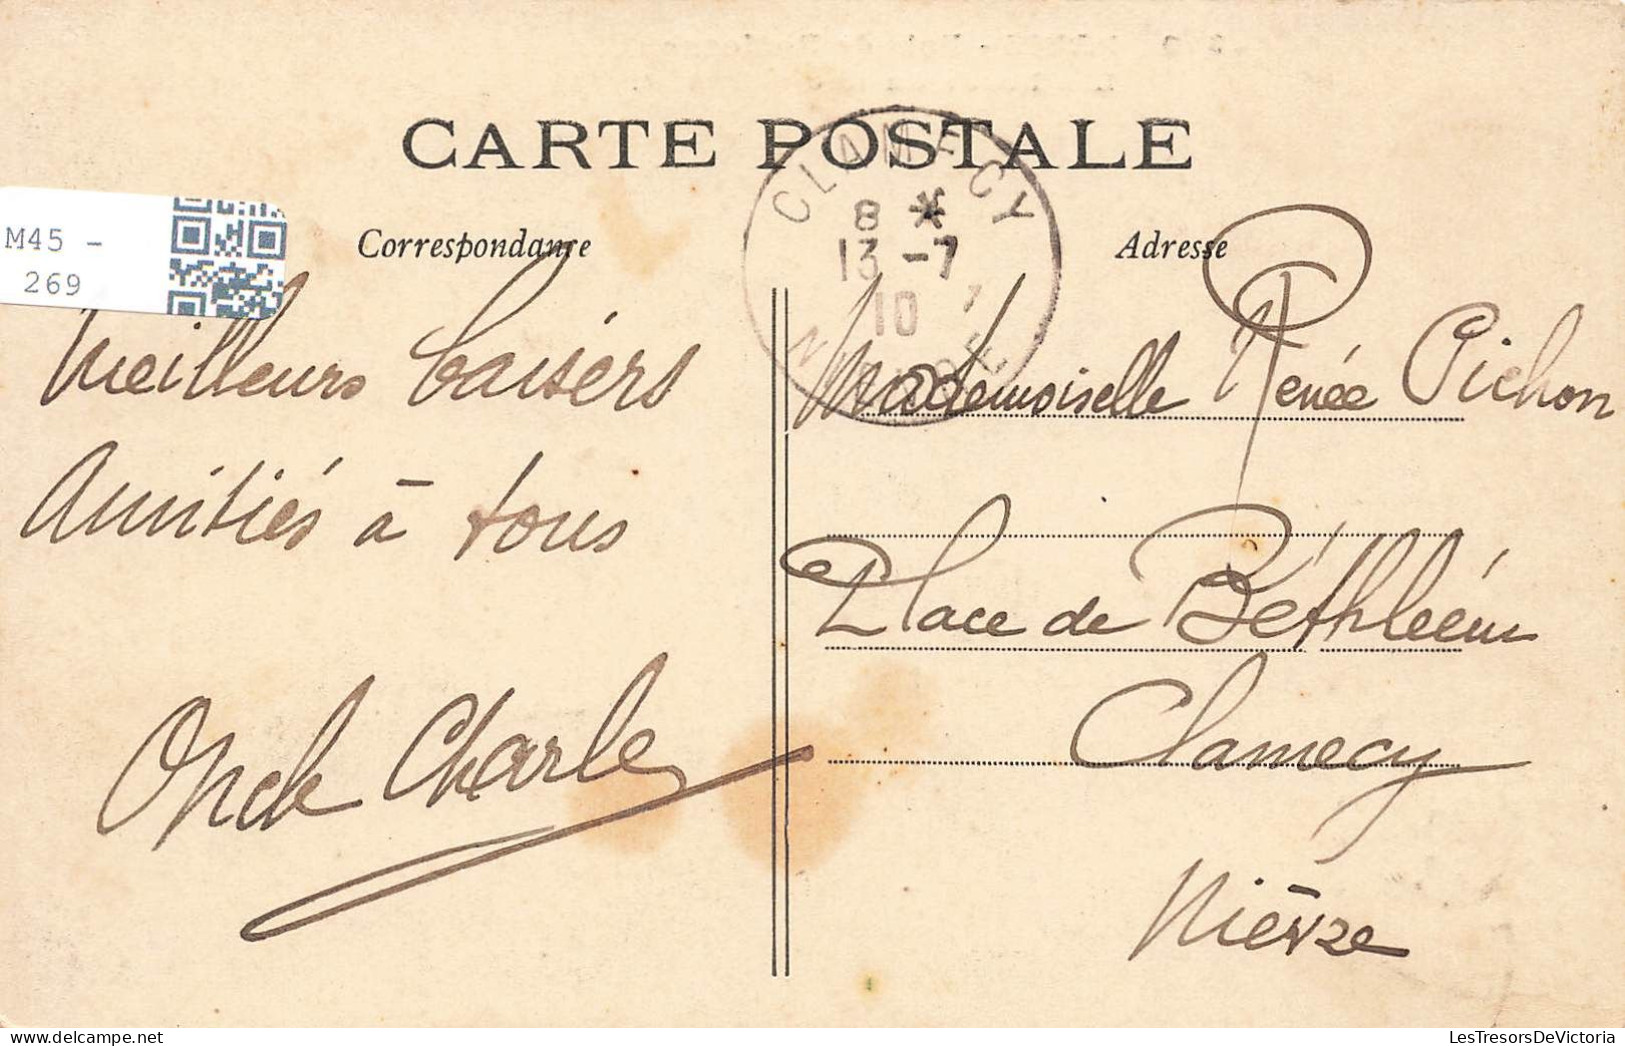 CARTE POSTALE
CLAMECY
8 *
13 -7
10
NIÈVRE
M45 -
269
Correspondance
Meilleurs baisers
Amitiés à tous
Oncle Charles
Adresse
Mademoiselle Renée Pichon
Place de Béthléem
Clamecy
Nièvre
LesTresorsDeVictoria.com